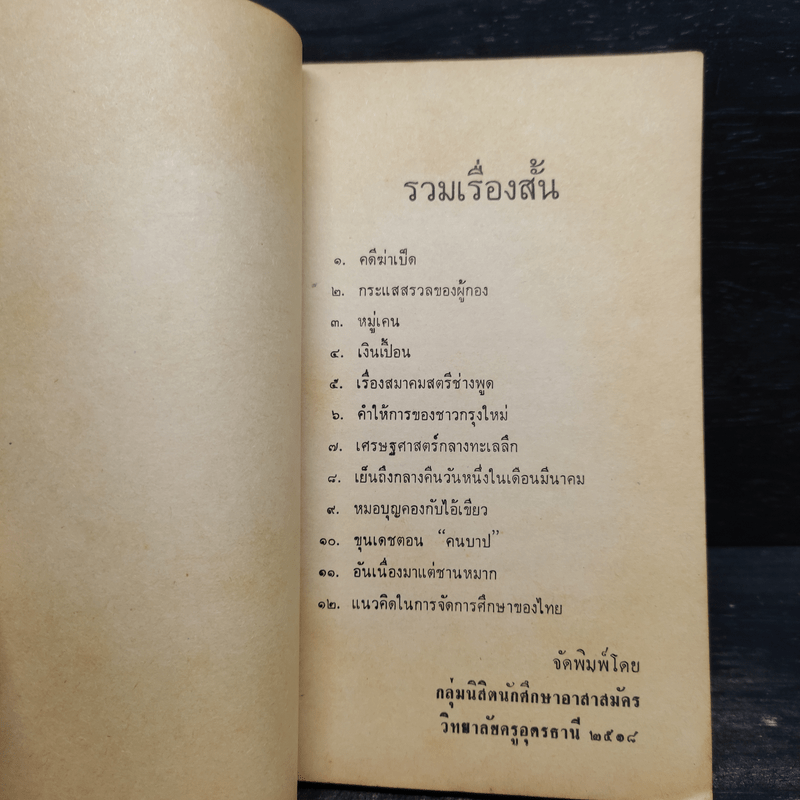 รวมเรื่องสั้น
๑. คดีฆ่าเป็ด
๒. กระแสสรวลของผู้กอง
๓. หมู่เคน
๔. เงินเปื้อน
๕. เรื่องสมาคมสตรีช่างพูด
๖. คำให้การของชาวกรุงใหม่
๗. เศรษฐศาสตร์กลางทะเลลึก
๘. เย็นถึงกลางคืนวันหนึ่งในเดือนมีนาคม
๙. หมอบุญคองกับไอ้เขียว
๑๐. ขุนเดชตอน “คนบาป”
๑๑. อันเนื่องมาแต่ชานหมาก
๑๒. แนวคิดในการจัดการศึกษาของไทย
จัดพิมพ์โดย
กลุ่มนิสิตนักศึกษาอาสาสมัคร
วิทยาลัยครูอุดรธานี ๒๕๑๘